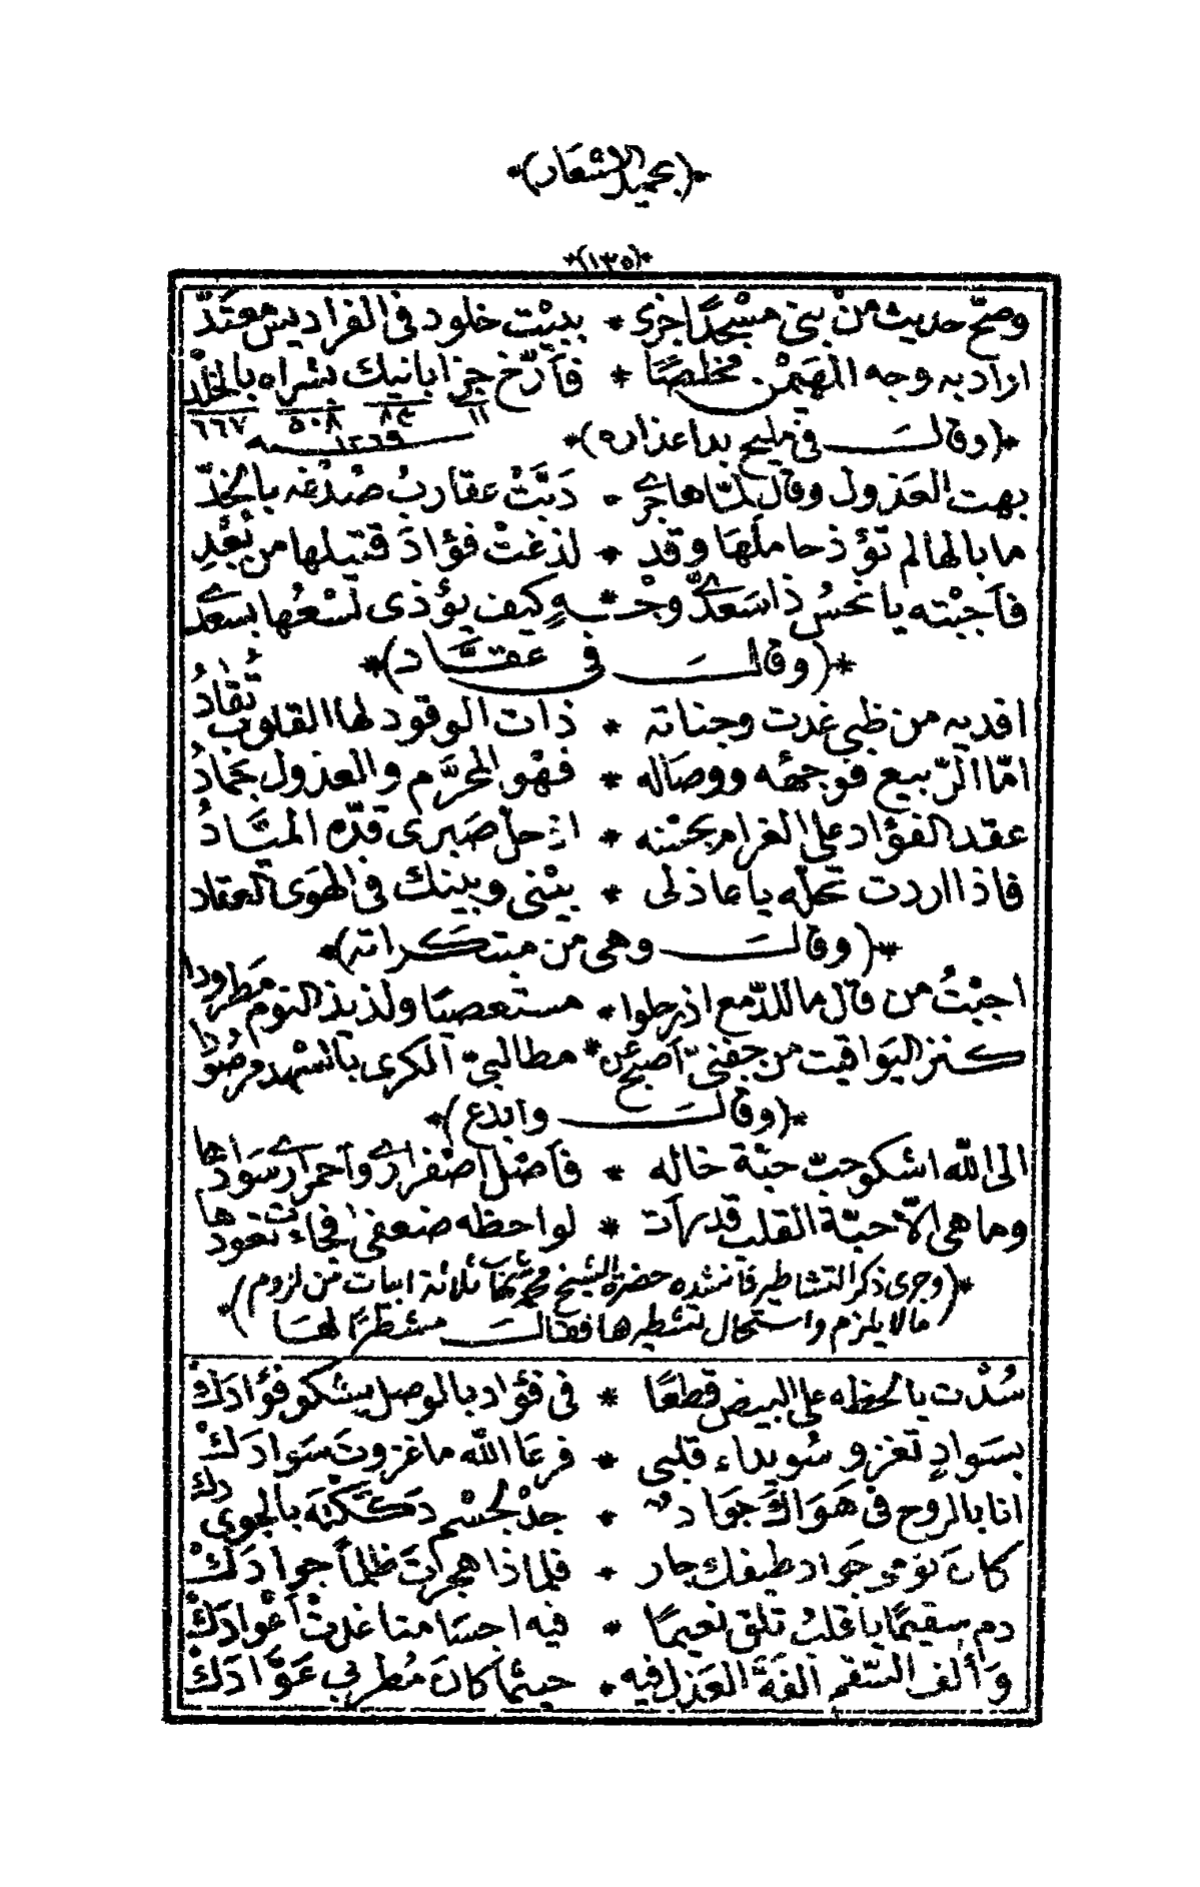 *(بحميد الاشعار)*
*(١٣٥)*
وصحّ حديث منْ بنى مسْجدًا جزى * ببيْت خلود فى الفراديس معتَدّ
اراد به وجه المهيْمن مخلصًا * فأرّخ جزا بانيك بشراه بالخلْد
١١ ٨٤ ٥٠٨ ٦٦٧
١٢٦٩
*(وقالــَـ في مليح بدا عذاره)*
بهت العذول وقال لمّا هاجرى * دَبَّتْ عقاربُ صُدْغه بالخدّ
ما بالها لم تؤذ حاملَهَا وقد * لذغتْ فؤادَ قتيلها من بُعْدِ
فأجبْته يا نحسُ ذا سَعدىّ وجْـ * ـهٍ كيف يؤذى لسْعُها بسعدى
*(وقالــَـ فى عقّاد)*
افديه من ظبي غدت وجناته * ذات الوقود لها القلوب تُقادُ
امّا الرّبيع فوجهُه ووصاله * فهْو المحرَّم والعذول جمادُ
عقد الفؤاد على الغرام بحسْنه * اذ حلّ صبرى قدّه الميَّادُ
فاذا اردت تحلّه يا عاذلى * بيْنى وبينك فى الهوَى العقاد
*(وقالــَـ وهى من مبتكراته)*
اجبْتُ من قال ما للدّمع اذ رحلوا * مستعصيًا ولذيذ النوم مَطرودا
كنز اليَواقيت من جفنىّ أصبح عن * مطالبي الكرى بالسّهد مرصُودا
*(وقالــَـ وأبدع)*
الى الله اشكو حبّ حبّة خاله * فأصْل اصْفرارى وأحمرارى سَوَادُها
وما هى الّا حبّة القلب قد رأت * لواحظه ضعفى فجاءت تعودها
*(وجرى ذكر التشاطير فأنشده حضرة الشيخ محمد شهاب ثلاثة ابيات من لزوم
ما لا يلزم واستحال تشطيرها فقالــَـ مشطرًا لهَا)*
سُدْت يا لحظه على البيض قطعًا * فى فؤاد بالوصل يشكو فؤادَكْ
بسَوادٍ تغزو سُويداء قلبى * فرعَا الله ما غزوتَ سَوادَكْ
انا بالروح فى هَوَاكَ جَوَادٌ * جدْ لجسْم دَكَّكْتَه بالجوى دكْ
كانَ نومى جَواد طيفك جار * فلماذا هجرْتَ ظلماً جوادَكْ
دم سقيمًا يا قلبُ تلق نعيمًا * فيه احسَا متا غدتْ أعْوادَكْ
وَألف السّقم ألفَةَ العَذل فيه * حيثما كانَ مُطربي عَوَّادَكْ